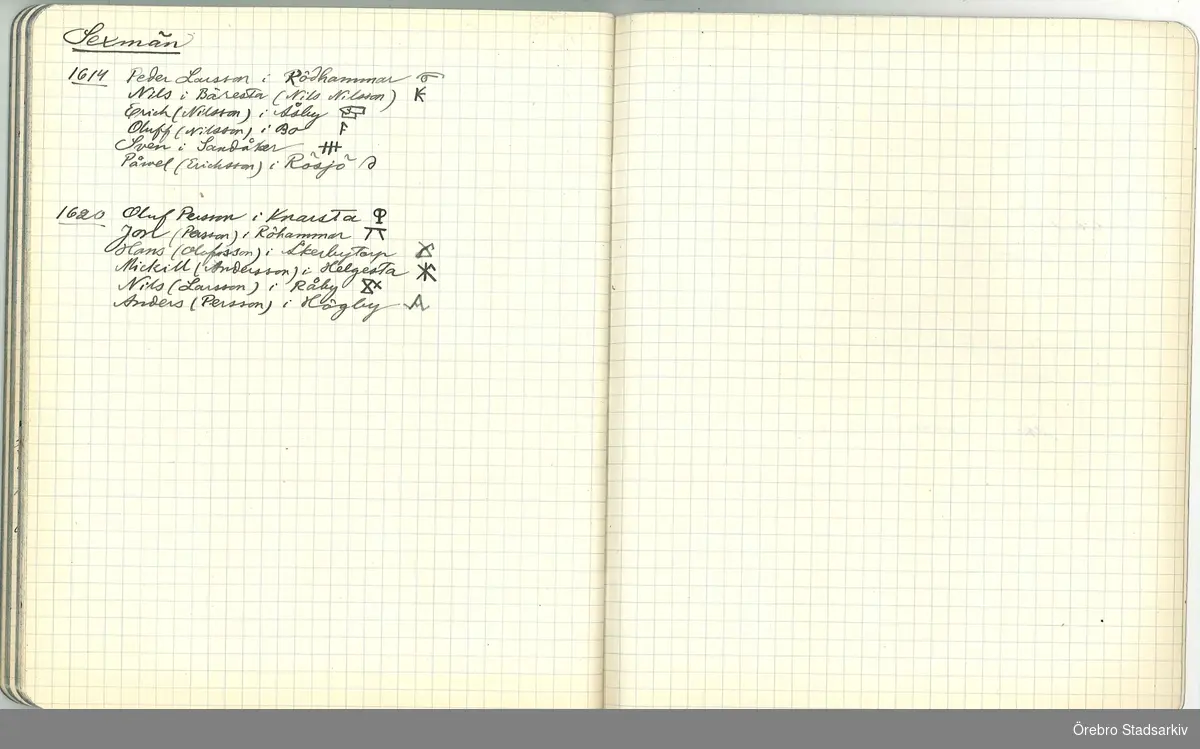 Sexmän
1614 Peder Larsson i Rödhammar
Nils i Bäresta (Nils Nilsson)
Erich (Nilsson) i Åsby
Oluff (Nilsson) i Bo
Sven i Sandåker
Påwel (Erichsson) i Rösjö
1620 Oluf Persson i Knarsta
Jon (Persson) i Röhammar
Hans (Olofsson) i Åkerbytorp
Mickill (Andersson) i Helgesta
Nils (Larsson) i Råby
Anders (Persson) i Högby
Örebro Stadsarkiv